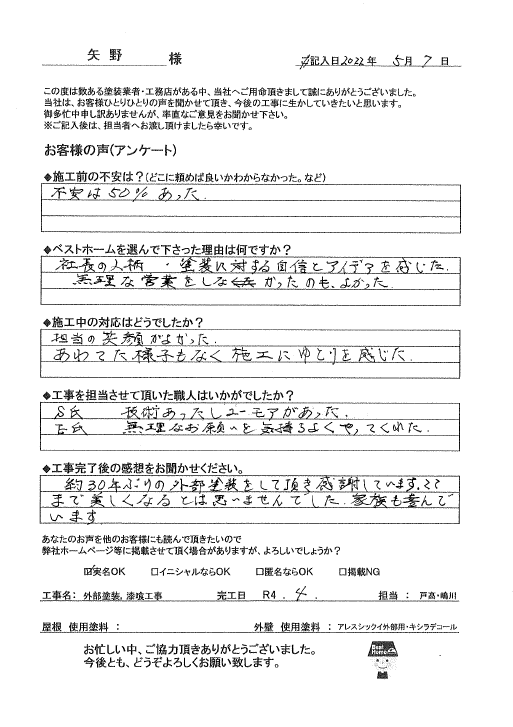 矢野 様 ご記入日 2022年 5月 7日
この度は数ある塗装業者・工務店がある中、当社へご用命頂きまして誠にありがとうございました。
当社は、お客様ひとりひとりの声を聞かせて頂き、今後の工事に生かしていきたいと思います。
御多忙中申し訳ありませんが、率直なご意見をお聞かせ下さい。
※ご記入後は、担当者へお渡し頂けましたら幸いです。
お客様の声(アンケート)
◆施工前の不安は?(どこに頼めば良いかわからなかった。など)
不安は50%あった.
◆ベストホームを選んで下さった理由は何ですか?
社長の人柄 ・塗装に対する自信とアイデアを感じた.
無理な営業をしなかったのも、よかった.
◆施工中の対応はどうでしたか?
担当の笑顔がよかった.
あわてた様子もなく施工にゆとりを感じた.
◆工事を担当させて頂いた職人はいかがでしたか?
S氏 技術あったしユーモアがあった.
E氏 無理なお願いを気持ちよくやってくれた.
◆工事完了後の感想をお聞かせください。
約30年ぶりの外部塗装をして頂き感謝しています.ここ
まで美しくなるとは思いませんでした.家族も喜んで
います
あなたのお声を他のお客様にも読んで頂きたいので
弊社ホームページ等に掲載させて頂く場合がありますが、よろしいでしょうか?
☑実名OK □イニシャルならOK □匿名ならOK □掲載NG
工事名: 外部塗装,漆喰工事 完工日 R4 . 4 . 担当: 戸高・嶋川
屋根 使用塗料: 外壁 使用塗料: アレスシックイ外部用・キシラデコール
お忙しい中、ご協力頂きありがとうございました。
今後とも、どうぞよろしくお願い致します。
Best Home